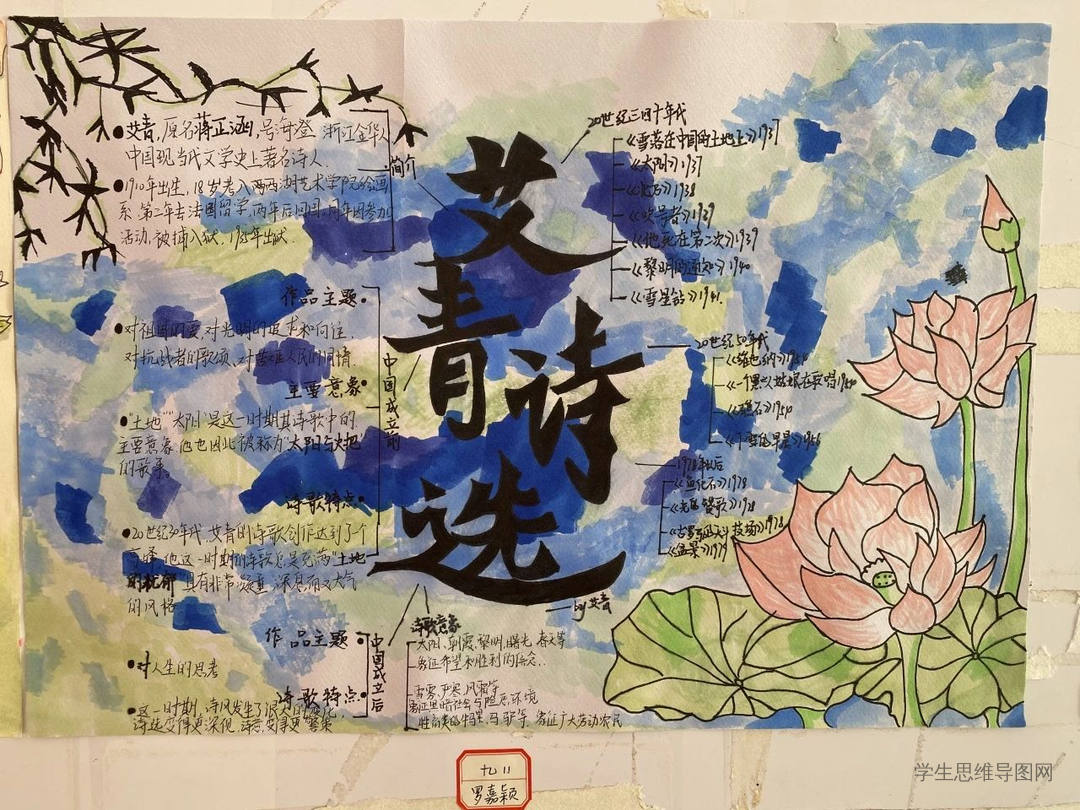 艾青诗选
by 艾青
简介
●艾青,原名蒋正涵,号海澄 浙江金华人
中国现当代文学史上著名诗人.
●1910年出生,18岁考入
系.第二年去法国留学,两年后回国,同年因参加
活动,被捕入狱.1935年出狱.
中国成立前
作品主题●
●对祖国的爱,对光明的追求和向往.
对抗战者的歌颂,对苦难人民的同情.
主要意象●
●"土地""太阳"是这一时期其诗歌中的
主要意象,他也因此被称为"太阳与火把
的歌手。
诗歌特点●
●20世纪30年代,艾青的诗歌创作达到了个
高峰.他这一时期的诗歌总是充满"土地
的忧郁"具有非常凝重,深沉而又大气
的风格
中国成立后
作品主题●
●对人生的思考
诗歌特点●
●这一时期,诗风发生了
诗歌意象
太阳、朝霞、黎明、曙光、春天等
象征希望和胜利的信念.
20世纪三四十年代
《雪落在中国的土地上》1937
《太阳》1937
《北方》1938
《吹号者》1939
《他死在第二次》1939
《黎明的通知》1940
《雪里钻》1941.
20世纪50年代
《维也纳》
《一个黑人姑娘在歌唱》
《礁石》1954
《下雪的早晨》1956
1978年以后
《鱼化石》1978
《光的赞歌》1978
《古罗马的大斗技场》
《盆景》1979
九 11
罗嘉颖
学生思维导图网